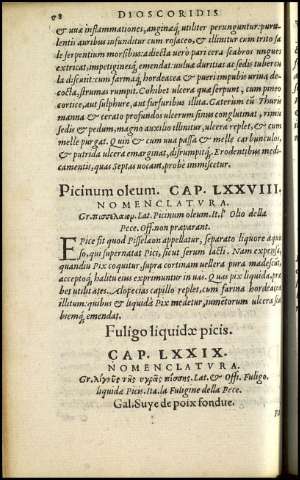 DIOSCORIDIS
& uuæ inflammationes, anginaq; utiliter perunguntur: puru-
lentis auribus infunditur cum rosaceo, & illinitur cum trito sa
le serpentium morsibus: adiecta uero pari cera scabros ungues
extricat, impetiginesq; emendat: uuluæ duritias ac sedis tubercu
la discutit: cum farinaq; hordeacea & pueri impubis urina, de-
cocta, strumas rumpit. Cohibet ulcera quæ serpunt, cum pineo
cortice, aut sulphure, aut furfuribus illita. Caterum eū Thuris
manna & cerato profundos ulcerum sinus conglutinat, rimis
sedis & pedum, magno auxilio illinitur, ulcera replet, & cum
melle purgat. Quin & cum uua passa & melle carbunculos,
& putrida ulcera emarginat, disrumpitq;. Erodentibus medi-
camentis, quas Septas uocant, probe immiscetur.
Picinum oleum. CAP. LXXVIII.
NOMENCLATVRA.
Gr. πισσέλαιον. Lat. Picinum oleum. It. l' Olio della
Pece. Off. non præparant.
E Pice fit quod Pisselæon appellatur, separato liquore aquo
so, qui supernatat Pici, sicut serum lacti. Nam expenso,
quandiu Pix coquitur, supra cortinam uellera pura madescūt,
acceptoq; halitu eius exprimuntur in uas. Quas pix liquida, præ
bet utilitates. Alopecias capillo replet, cum farina hordeacea
illitum: quibus & liquida Pix medetur, iumetorum ulcera sca
biemq; emendat.
Fuligo liquidæ picis.
CAP. LXXIX.
NOMENCLATVRA.
Gr. λιγνὺς τῆς ὑγρᾶς πίσσης. Lat. & Off. Fuligo.
liquidæ Picis. Ita. la Fuligine della Pece.
Gal. Suye de poix fondue.